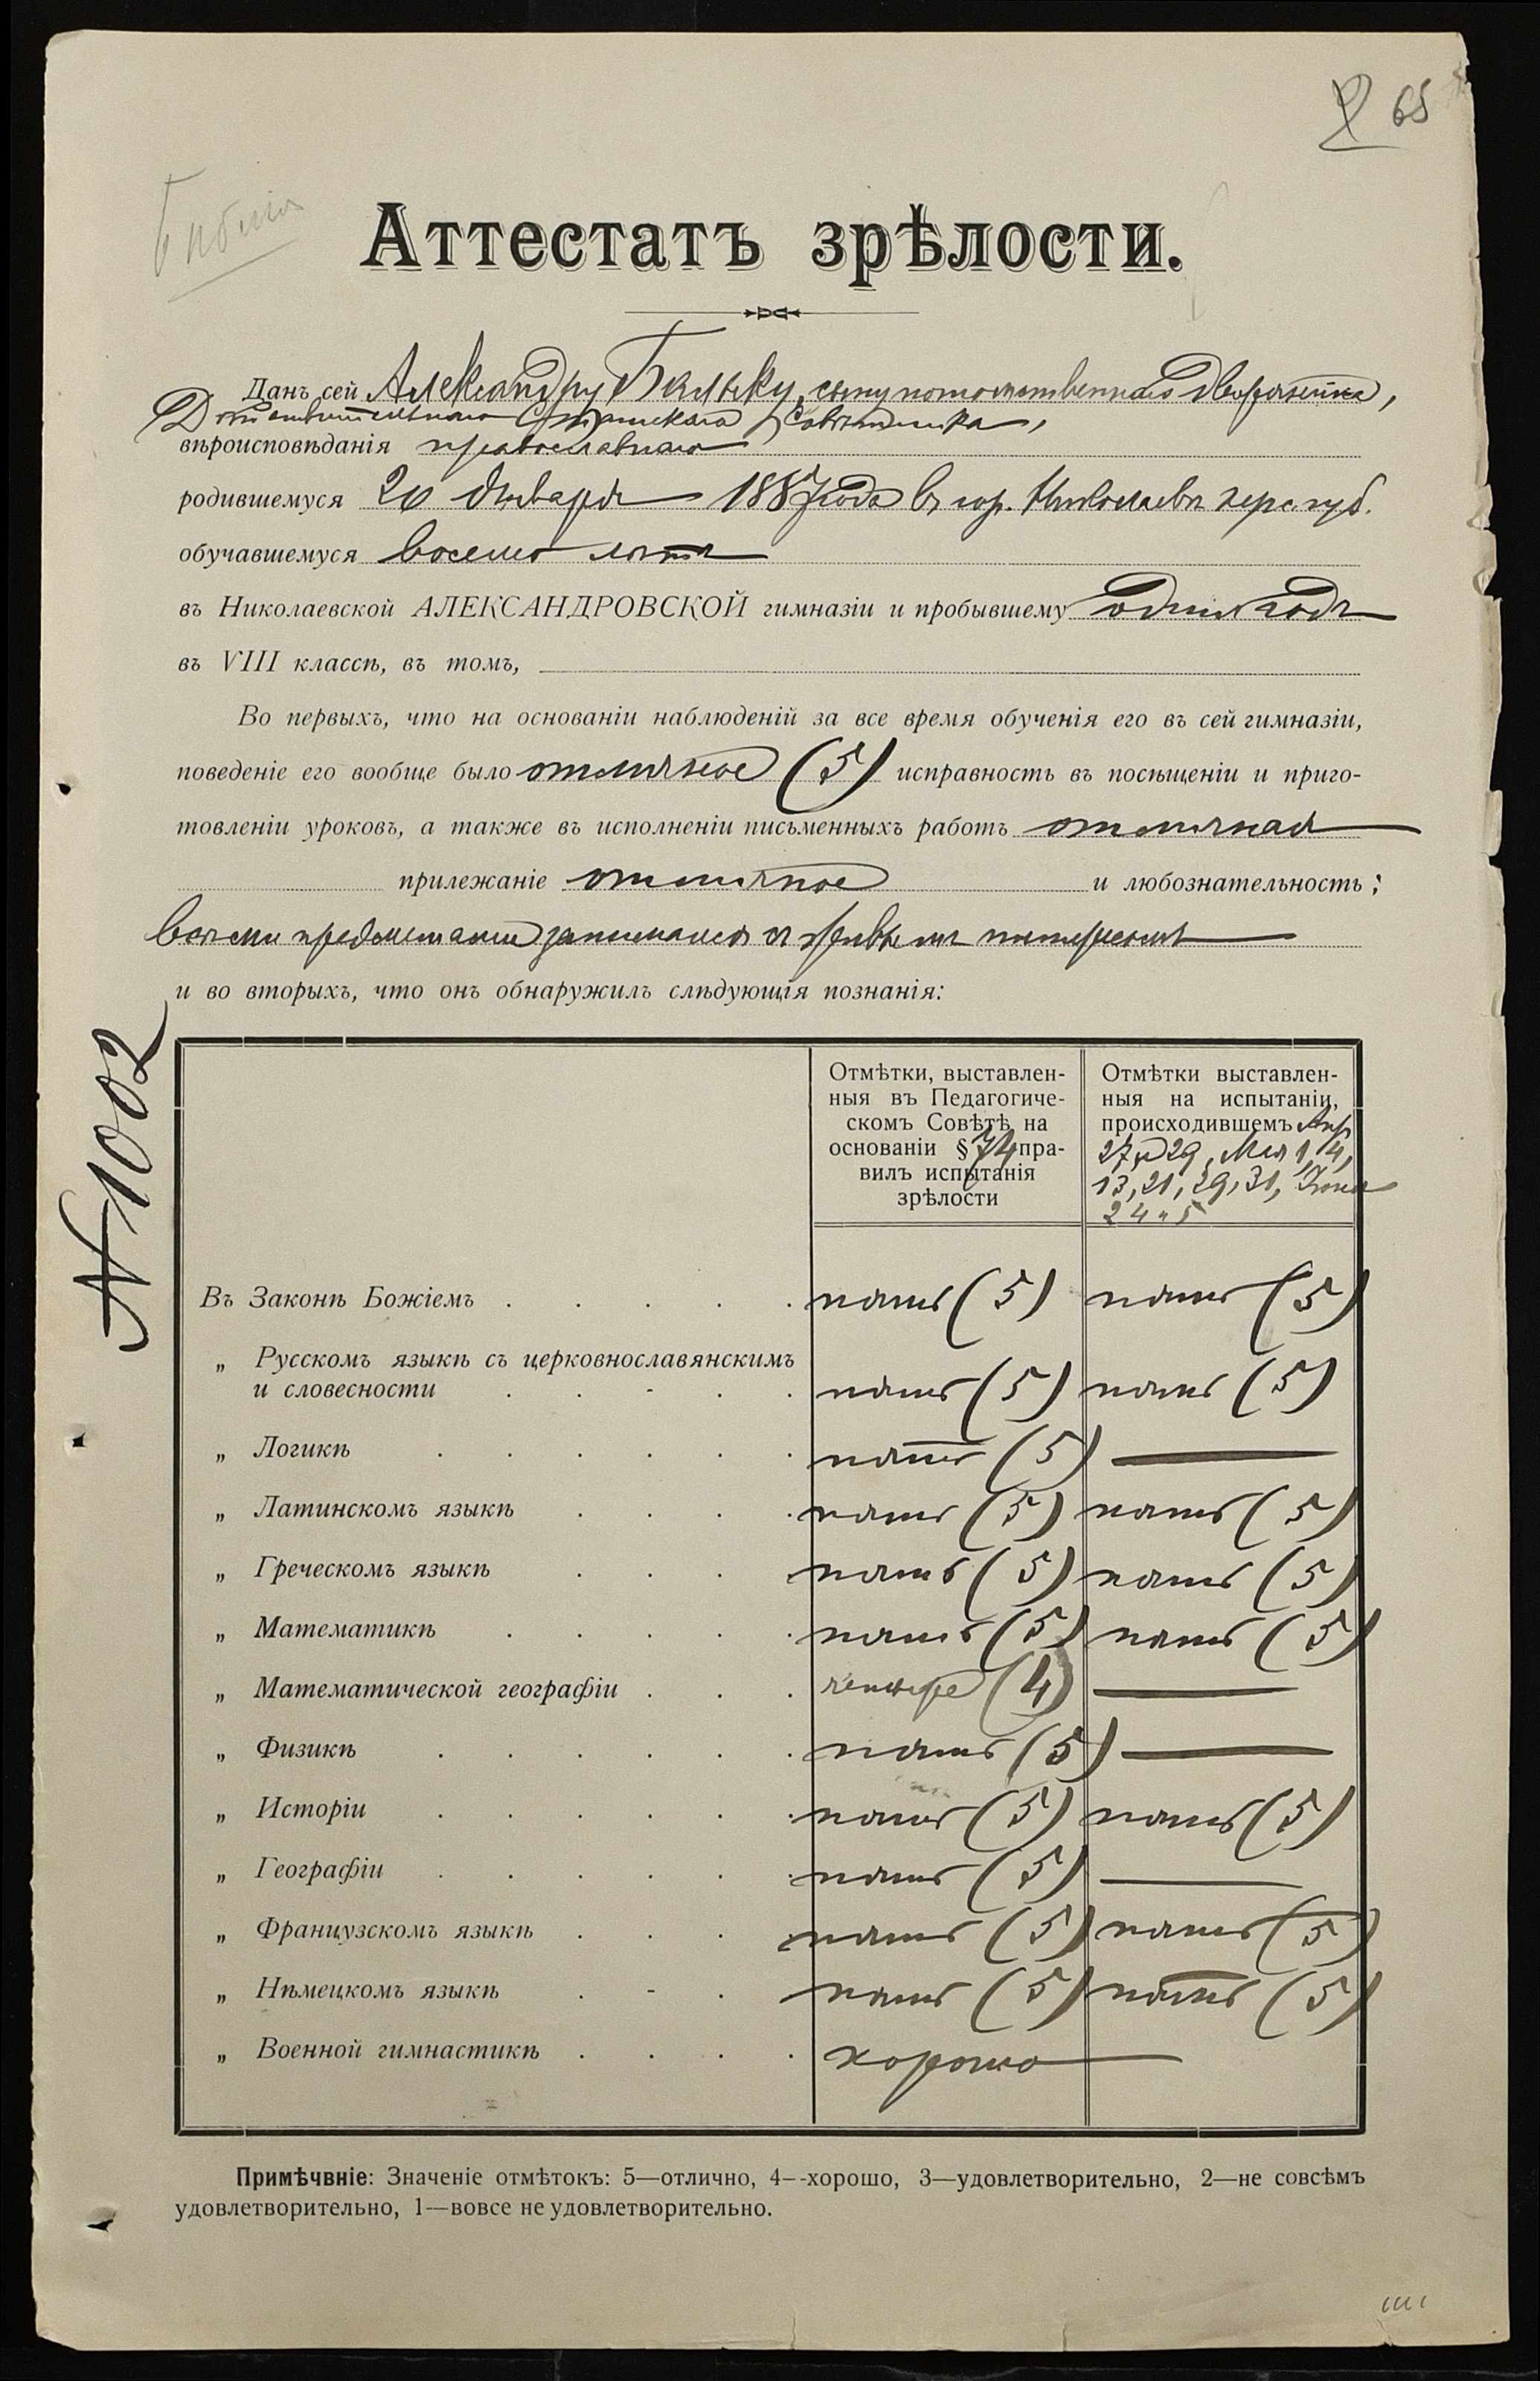 65
Аттестатъ зрѣлости.
Данъ сей Александру Бялыку, сыну потомственнаго дворянина,
Дѣйствительнаго Статскаго Совѣтника,
вѣроисповѣданія православнаго
родившемуся 20 Января 1887 года въ гор. Николаевѣ херс. губ.
обучавшемуся восемь лѣтъ
въ Николаевской АЛЕКСАНДРОВСКОЙ гимназіи и пробывшему одинъ годъ
въ VIII классѣ, въ томъ,
Во первыхъ, что на основаніи наблюденій за все время обученія его въ сей гимназіи,
поведеніе его вообще было отличное (5) исправность въ посѣщеніи и приго-
товленіи уроковъ, а также въ исполненіи письменныхъ работъ отличная
прилежаніе отличное и любознательность:
всѣми предметами занимался съ живымъ интересомъ
и во вторыхъ, что онъ обнаружилъ слѣдующія познанія:
№ 1002
Отмѣтки, выставлен-
ныя въ Педагогиче-
скомъ Совѣтѣ на
основаніи § 74 пра-
вилъ испытанія
зрѣлости
Отмѣтки выставлен-
ныя на испытаніи,
происходившемъ Апр.
27 и 29, Мая 1, 4,
13, 21, 29, 31, Іюня
2 4 и 5
Въ Законѣ Божіемъ . . . . . пять (5) пять (5)
„ Русскомъ языкѣ съ церковнославянскимъ
и словесности . . - . . пять (5) пять (5)
„ Логикѣ . . . . . . пять (5) —
„ Латинскомъ языкѣ . . . . пять (5) пять (5)
„ Греческомъ языкѣ . . . . пять (5) пять (5)
„ Математикѣ . . . . . пять (5) пять (5)
„ Математической географіи . . . четыре (4) —
„ Физикѣ . . . . . . пять (5) —
„ Исторіи . . . . . . пять (5) пять (5)
„ Географіи . . . . . . пять (5) —
„ Французскомъ языкѣ . . . . пять (5) пять (5)
„ Нѣмецкомъ языкѣ . - . пять (5) пять (5)
„ Военной гимнастикѣ . . . . хорошо —
Примѣчвніе: Значеніе отмѣтокъ: 5—отлично, 4--хорошо, 3—удовлетворительно, 2—не совсѣмъ
удовлетворительно, 1—вовсе не удовлетворительно.